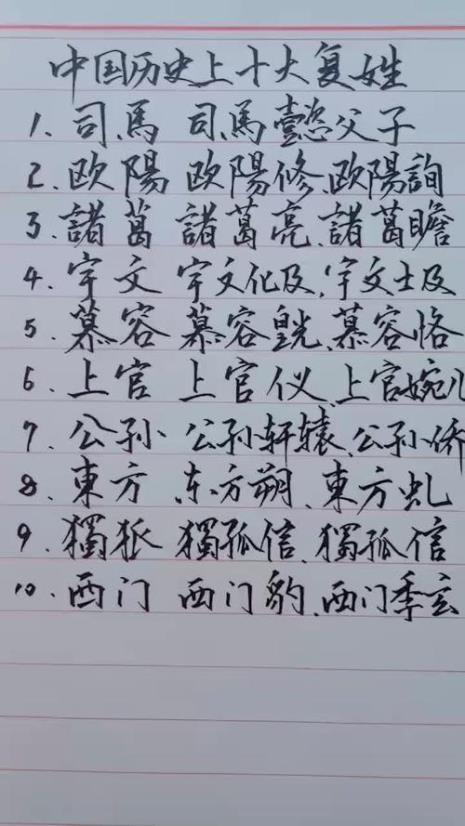 中国历史上十大复姓
1. 司馬 司馬懿父子
2. 欧陽 欧陽修、欧陽詢
3. 諸葛 諸葛亮、諸葛瞻
4. 宇文 宇文化及、宇文士及
5. 慕容 慕容皝、慕容恪
6. 上官 上官仪、上官婉儿
7. 公孙 公孙轩辕、公孙侨
8. 東方 东方朔、東方虬
9. 獨孤 獨孤信、獨孤信
10. 西门 西门豹、西门季玄